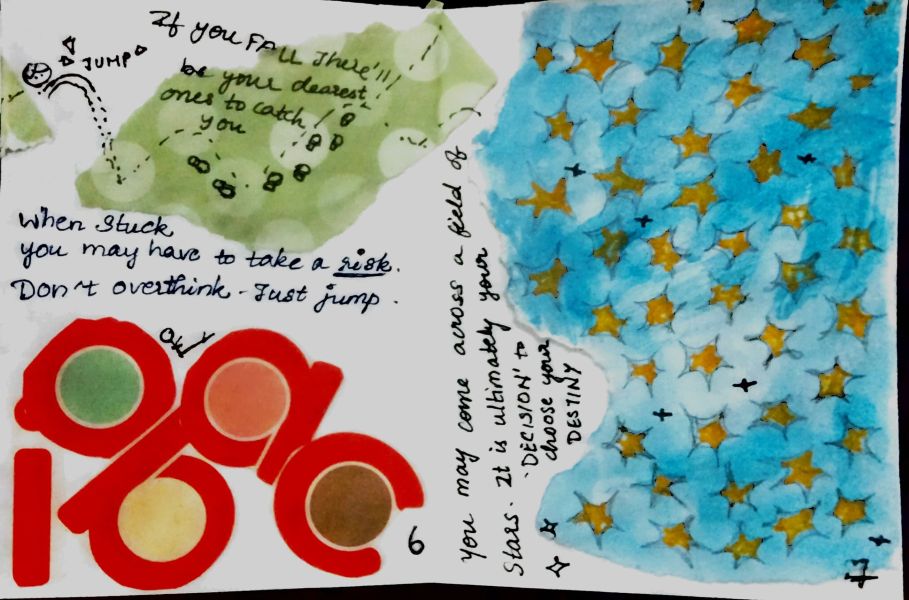 JUMP
If you FALL There'll
be your dearest
ones to catch
you
When Stuck
you may have to take a risk.
Don't overthink - Just jump.
6
you may come across a field of
Stars. It is ultimately your
'DECISION' to
choose your
DESTINY
7